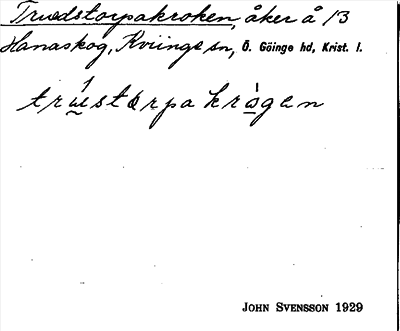 Truedstorpakroken, åker å 13
Hanaskog, Kviinge sn, Ö. Göinge hd, Krist. l.
trùstårpakrògen
JOHN SVENSSON 1929